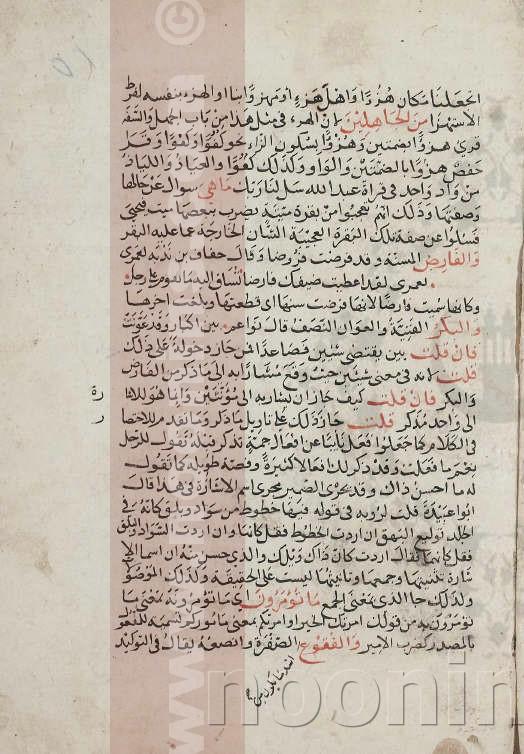 اتجعلنا مكان هزو او اهل هزء او مهزوا بنا او الهزء نفسه لفرط
الاستهزا من الجاهلين لان الهزء في مثل هذا من باب الجهل والسفه
قري هزؤا بضمتين وهزءا بسكون الزاء نحو كفؤا وكفؤا وقرا
حفص هزوا بالضمتين والواو وكذلك كفوا والعياذ واللياذ
من واد واحد في قراة عبد الله سل لنا ربك ما هي سوال عن حالها
وصفتها وذلك انهم تعجبوا من بقرة ميتة يضرب ببعضها ميت فيحيى
فسالوا عن صفة تلك البقرة العجيبة الشان الخارجة عما عليه البقر
والفارض المسنة وقد فرضت فروضا وقال خفاف بن ندبة لعمرى
لعمري لقد اعطيت ضيفك فارضا تساق اليه ما تقوم على رجل
وكانها سميت فارضا لانها فرضت سنها اي قطعتها وبلغت اخرها
والبكر الفتية والعوان النصف قال نواعم بين ابكار وعون
فان قلت بين يقتضي شيئين فصاعدا فمن جاز دخوله على ذلك
قلت لانه في معنى شيئين حيث وقع مشارا به الى ما ذكر من الفارض
والبكر فان قلت كيف جاز ان يشار به الى مؤنثين وانما هو للاشا
رة
الى واحد مذكر قلت جاز ذلك على تاويل ما ذكر وما تقدم للاختصا
ر
في الكلام كما جعلوا فعل نايبا عن افعال جمة تذكر قبله تقول للرجل
نعم ما فعلت وقد ذكر لك افعالا كثيرة وقصة طويلة كما تقول
له ما احسن ذاك وقد يجري الضمير مجرى اسم الاشارة في هذا قال
ابو عبيدة قلت لروبة في قوله فيها خطوط من سواد وبلق كانه في
الجلد توليع البهق ان اردت الخطوط فقل كانها وان اردت السواد والبلق
فقل كانهما فقال اردت كان ذاك ويلك والذي حسن منه ان اسما الا
شارة تثنيتها وجمعها وتانيثها ليست على الحقيقة وكذلك الموصو
ولذلك جا الذي بمعنى الجمع ما تؤمرون اي ما تؤمرونه بمعنى ما
تؤمرون به من قولك امرتك الخير او امركم بمعنى ماموركم تسمية للمفعو
بالمصدر كضرب الامير والفقوع اشد ما يكون من الصفرة وانصعه يقال في التوكيد